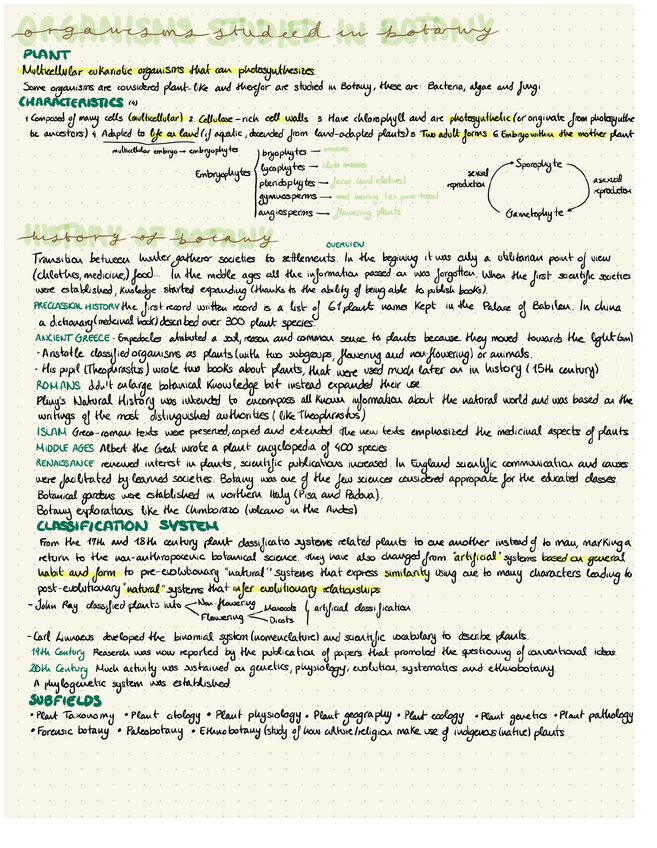 organisms studied in botany
PLANT
Multicellular eukariotic organisms that can photosynthesize.
Some organisms are considered plant-like and therfor are studied in Botany, these are: Bacteria, algae and fungi
CHARACTERISTICS
1 Composed of many cells (multicellular) 2. Cellulose-rich cell walls 3 Have chlorophyll and are photosynthetic (or originate from photosynthe
tic ancestors) 4 Adapted to life on land (if aquatic, descended from land-adapted plants) 5 Two adult forms 6 Embryo within the mother plant
multicellular embryo → embryophytes
Embryophytes
bryophytes → mosses
lycophytes → club mosses
pteridophytes → ferns (and relatives)
gymnosperms → seed bearing (ex pine trees)
angiosperms → flowering plants
Sporophyte
sexual reproduction
asexual reproduction
Gametophyte
history of botany
OVERVIEW
Transition between hunter gatherer societies to settlements. In the begining it was only a utilitarian point of view
(chlothes, medicine, food... In the middle ages all the information passed on was forgotten. When the first scientific societies
were established, knoledge started expanding (thanks to the ability of being able to publish books).
PRECLASSICAL HISTORY the first record written record is a list of 61 plants names kept in the Palace of Babilon. In china
a dictionary (medicinal book) described over 300 plant species.
ANCIENT GREECE - Empedocles atributed a soul, reason and common sence to plants because they moved towards the light (sun)
- Aristotle classified organisms as plants (with two subgroups, flowering and non-flowering) or animals.
- His pupil (Theophrastus) wrote two books about plants, that were used much later on in history (15th century)
ROMANS didn't enlarge botanical knowledge but instead expanded their use.
Pliny's Natural History was intended to encompass all known information about the natural world and was based on the
writings of the most distinguished authorities (like Theophrastus)
ISLAM Greco-roman texts were preserved, copied and extended. The new texts emphasized the medicinal aspects of plants
MIDDLE AGES Albert the Great wrote a plant encyclopedia of 400 species
RENAISSANCE renewed interest in plants, scientific publications increased. In England scientific communication and causes
were facilitated by learned societies. Botany was one of the few sciences considered appropiate for the educated classes.
Botanical gardens were established in northern Italy (Pisa and Padova).
Botany explorations like the Chimborazo (volcano in the Andes)
CLASSIFICATION SYSTEM
From the 17th and 18th century plant classificatio systems related plants to one another instead of to man, marking a
return to the non-anthropocenic botanical science. They have also changed from "artificial" systems based on general
habit and form to pre-evolutionary "natural" systems that express similarity using one to many characters leading to
post-evolutionary "natural" systems that infer evolutionary relationships.
- John Ray classified plants into
Non-flowering
Flowering
Monocots
Dicots
artificial classification
- Carl Linnaeus developed the binomial system (nomenclature) and scientific vocabulary to describe plants.
19th Century Reaserch was now reported by the publication of papers that promoted the questioning of conventional ideas.
20th Century Much activity was sustained on genetics, physiology, evolution, systematics and ethnobotany.
A phylogenetic system was established
SUBFIELDS
• Plant Taxonomy • Plant citology • Plant physiology • Plant geography • Plant ecology • Plant genetics • Plant pathology
• Forensic botany • Paleobotany • Ethnobotany (study of how culture/religion make use of indigenous (native) plants